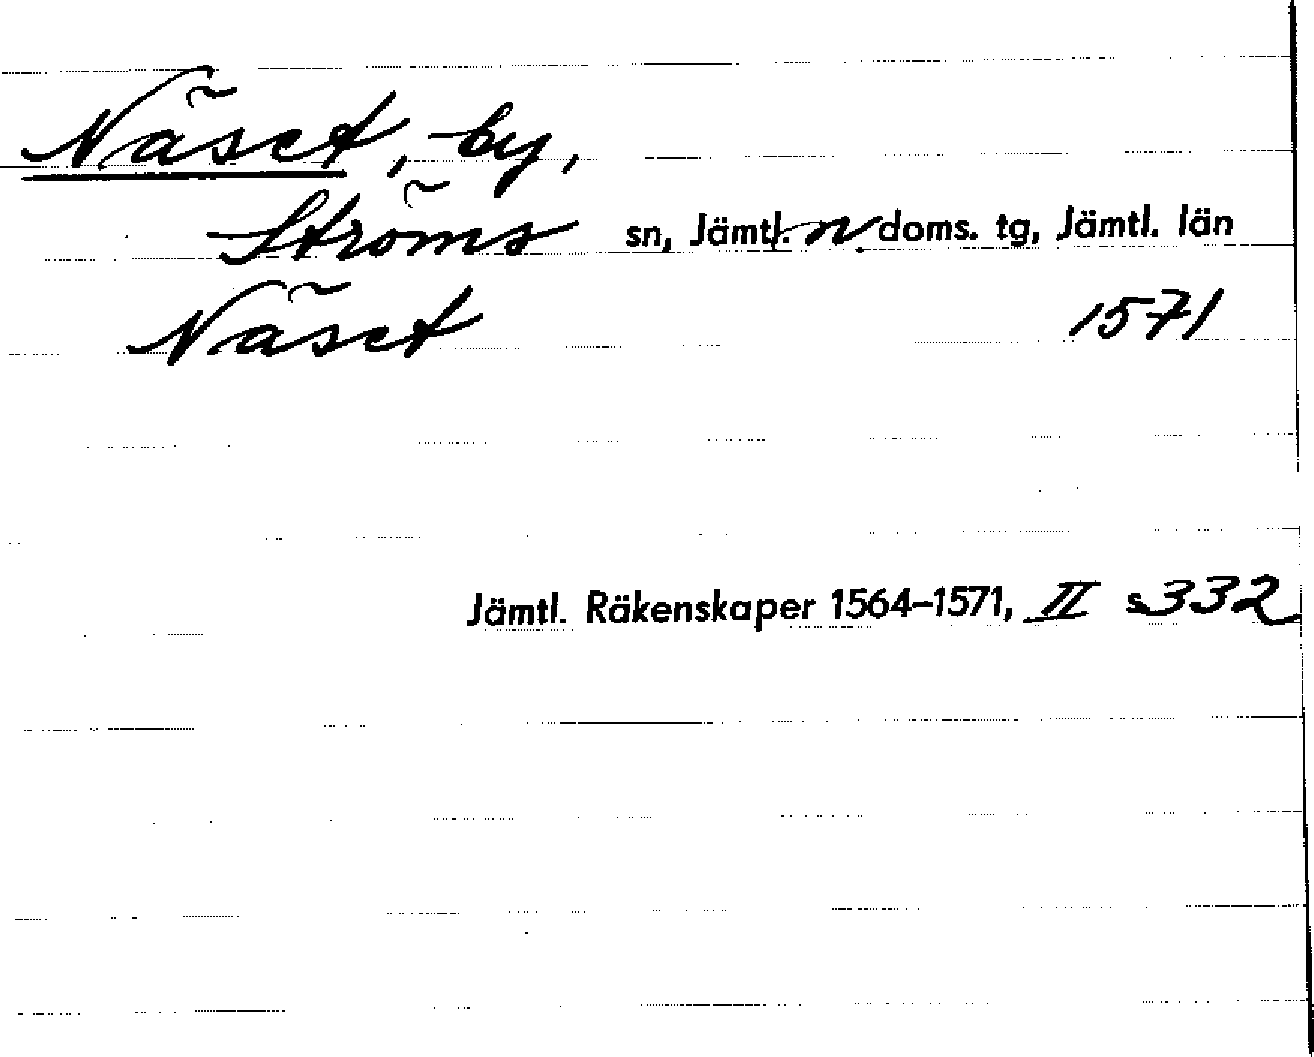 Näset, by,
Ströms sn, Jämtl. n doms. tg, Jämtl. län
Näset 1571
Jämtl. Räkenskaper 1564–1571, II s 332